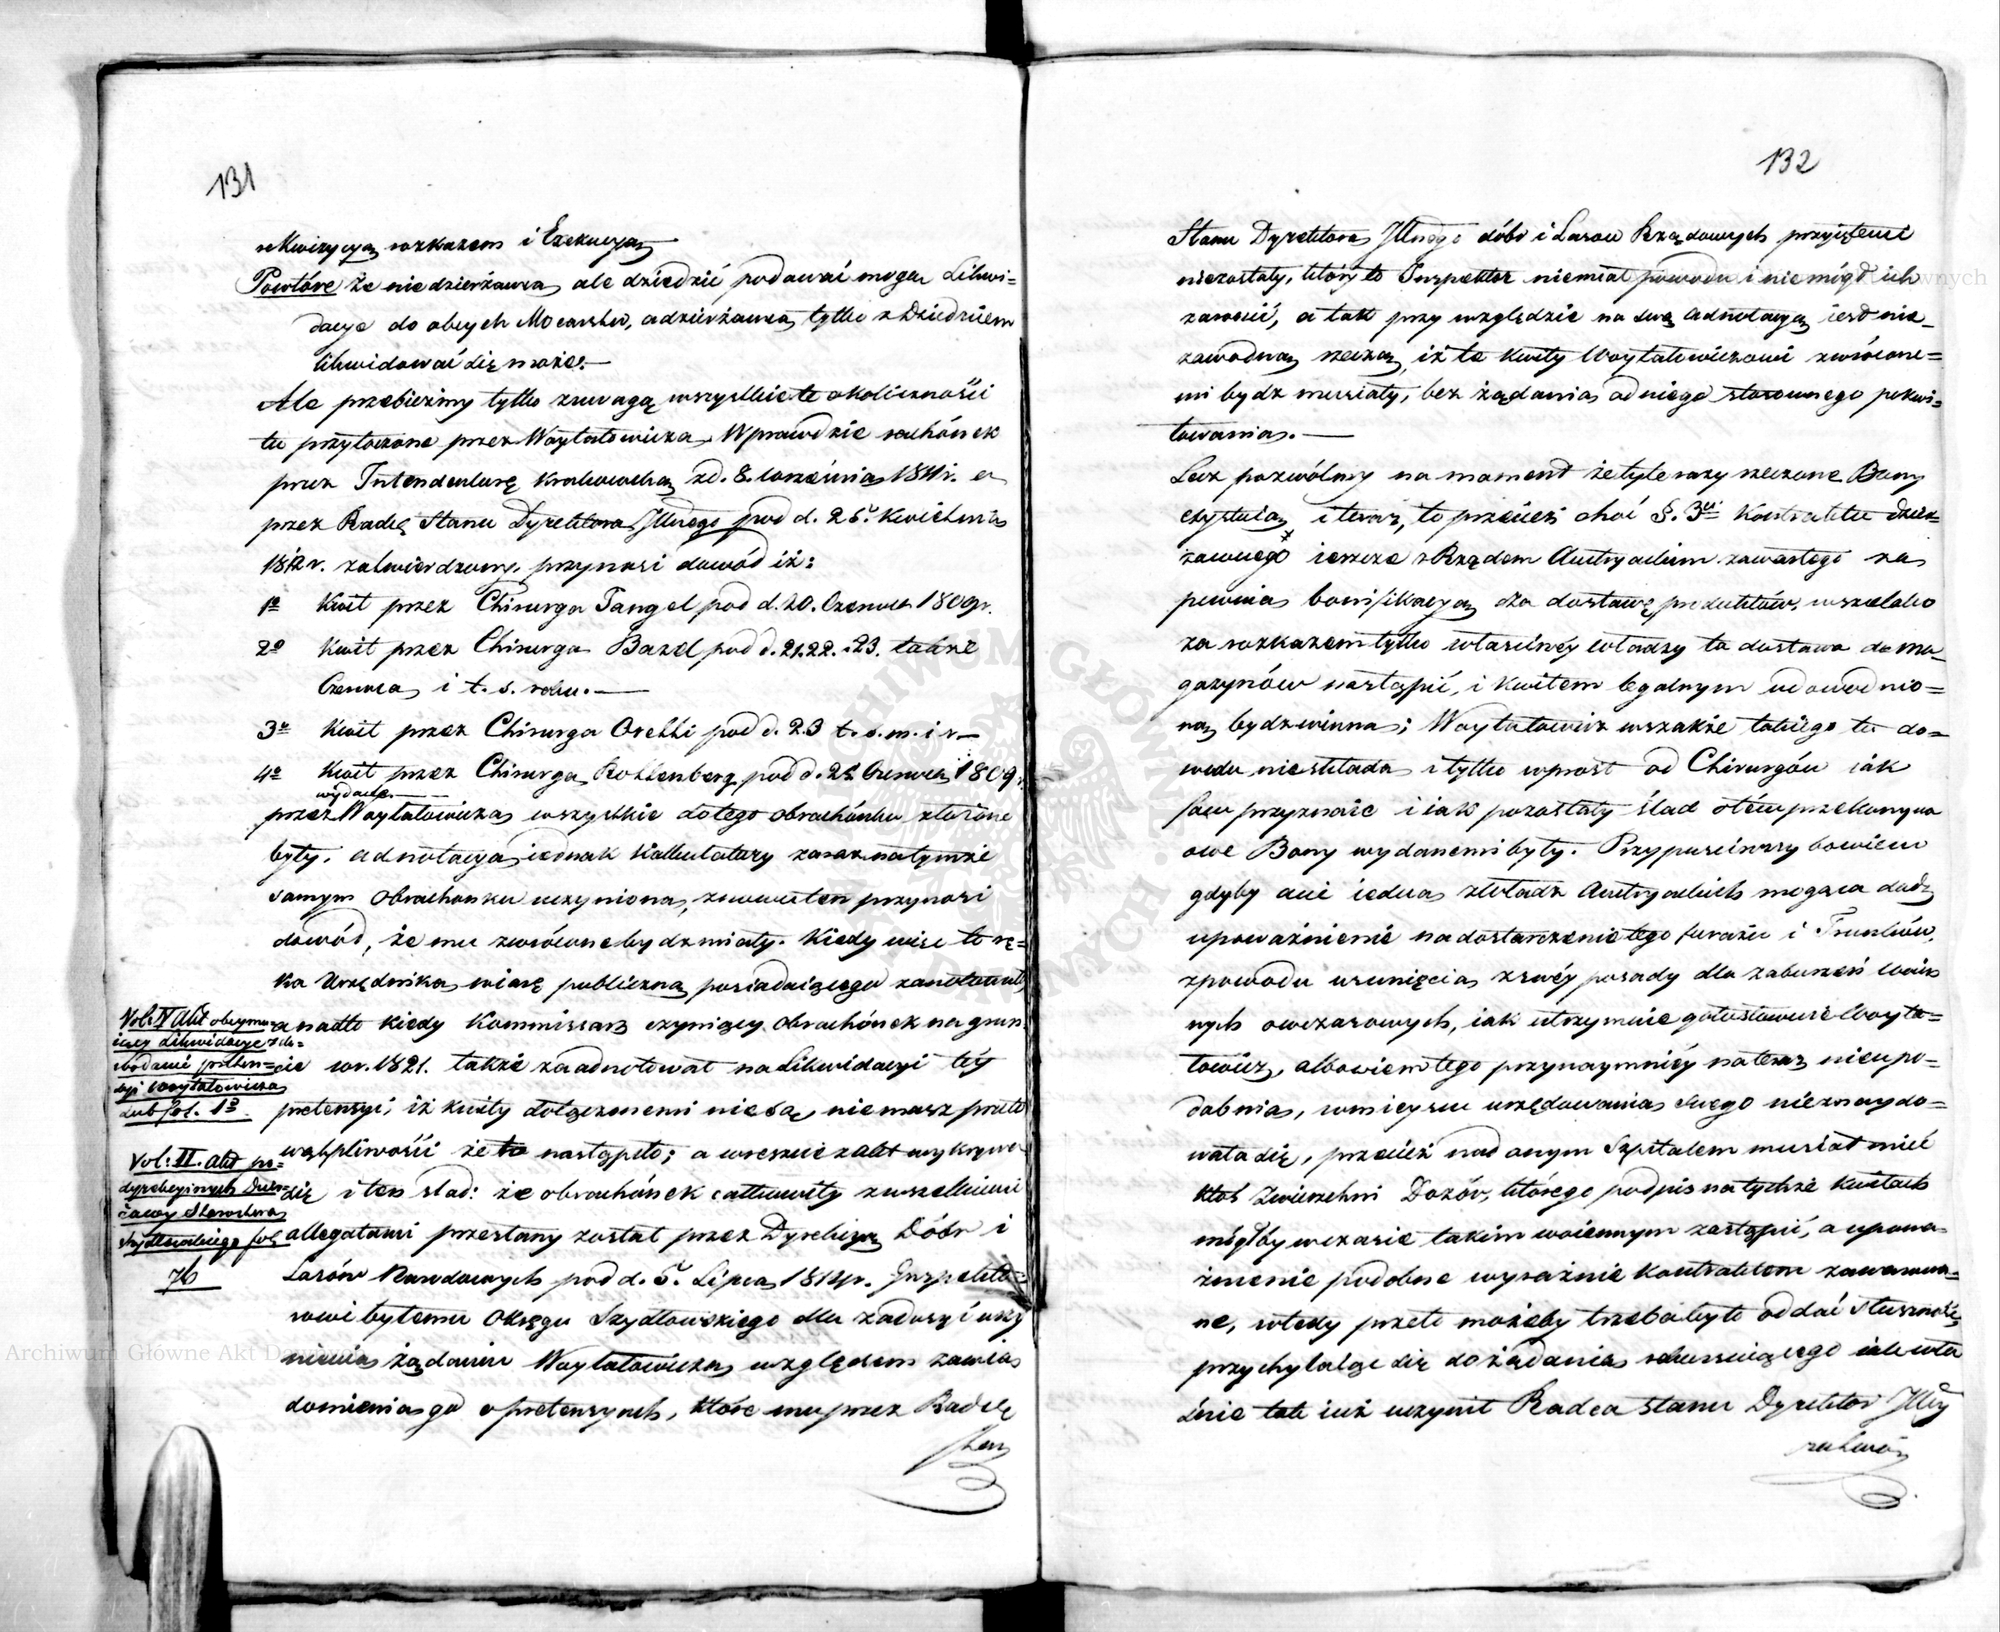 131
rekwizycyą rozkazem i Exekucyą
Powtóre że nie dzierżawca ale dziedzic podawać mogą Likwi=
dacye do obcych Mocarstw, a dzierżawca tylko z Dziedzicem
likwidować się może.—
Ale przebieżmy tylko z uwagą wszystkie te okoliczności
tu przytoczone przez Woytatowicza. Wprawdzie rachónek
przez Intendenturę Krakowską z d. 8. września 1811 r. a
przez Radcę Stanu Dyrektora Jlnego pod d. 25. Kwietnia
1812 r. zatwierdzony, przynosi dowód iż:
1o Kwit przez Chirurga Tangel pod d. 20. Czerwca 1809 r.
2o Kwit przez Chirurga Bazel pod d. 21. 22. i 23. także
Czerwca i t. s. roku.—
3o Kwit przez Chirurga Orelli pod d. 23 t. s. m. i r.—
4o Kwit przez Chirurga Rohlenberg pod d. 25 Czerwca 1809 r.
wydane.—
przez Woytatowicza wszystkie do tego obrachónku złożone
były. adnotacya jednak Kalkulatury zaraz na tymże
samym Obrachonku uczyniona, znowu ten przynosi
dowód, że mu zwrócone bydz miały. Kiedy więc to rę=
ka Urzędnika wiarę publiczną posiadaiącego zanotowała
a nadto kiedy Kommissarz czyniący Obrachónek na grun=
cie w r. 1821. także zaadnotował na Likwidacyi téy
pretensyi, iż kwity dołączonemi nie są, nie masz przeto
wątpliwości że to nastąpiło; a wreszcie z akt wykrywa
się i ten slad: że obrachónek całkowity z wszelkiemi
allegatami przesłany został przez Dyrekcyą Dóbr i
Lasów Narodowych pod d. 5. Lipca 1814 r. Inspekto=
rowi byłemu Okręgu Szydłowskiego dla zadosyć uczy
nienia żądaniu Woytatowicza względem zawia
domienia go o pretensyach, które mu przez Radcę
Stanu
Vol: IV Akt obeymu=
iący Likwidacye z do=
wodami preten=
syi Woytatowicza
sub fol. 1o.
Vol: II. akt po=
dyrekcyinych Dzier=
żawy Starostwa
Szydłowskiego fol
76
132
Stanu Dyrektora Jlnego dóbr i Lasow Rządowych przyiętemi
niezostały, który to Inspektor niemiał powodu i niemógł ich
zawrócić, a tak przy względzie na swą adnotacyą iest nie=
zawodną rzeczą, iż te kwity Woytatowiczowi zwrócone=
mi bydz musiały, bez żądania od niego stosownego pokwi=
towania.—
Lecz pozwólmy na moment że tyle razy rzeczone Bony
exystuią i teraz, to przecież choć §. 3ci Kontraktu dzier=
żawnego ieszcze z Rządem Austryackim zawartego za
pewnia bonifikacyą za dostawę produktów, wszelako
za rozkazem tylko właściwéy władzy ta dostawa do Ma=
gazynów nastąpić, i kwitem legalnym udowodnio=
ną bydz winna; Woytatowicz wszakże takiego tu do=
wodu nieskłada i tylko wprost od Chirurgów iak
sam przyznaie i iak pozostały ślad o tém przekonywa
owe Bony wydanemi były. Przypusciwszy bowiem
gdyby ani iedna z Władz Austryackich mogąca dadz
upoważnienie na dostarczenie tego furażu i Trunków,
z powodu usunięcia z swéy posady dla zaburzeń woien
nych owczasowych, iak utrzymuie gołosłownie Woyta=
towicz, albowiem tego przynaymniéy na teraz nieupo=
dabnia, w mieyscu urzędowania swego nieznaydo=
wała się, przecież nad onym Szpitalem musiał mieć
ktoś Zwierzchni Dozór, którego podpis na tychże kwitach
mógłby w czasie takim woiennym zastąpić, a upowa=
żnienie podobne wyraźnie Kontraktem zawarowa=
ne, wtedy przeto możeby trzeba było oddać słuszność
przychylaiąc się do żądania rekursuiącego iakowła
śnie tak iuż uczynił Radca Stanu Dyrektor Jlny